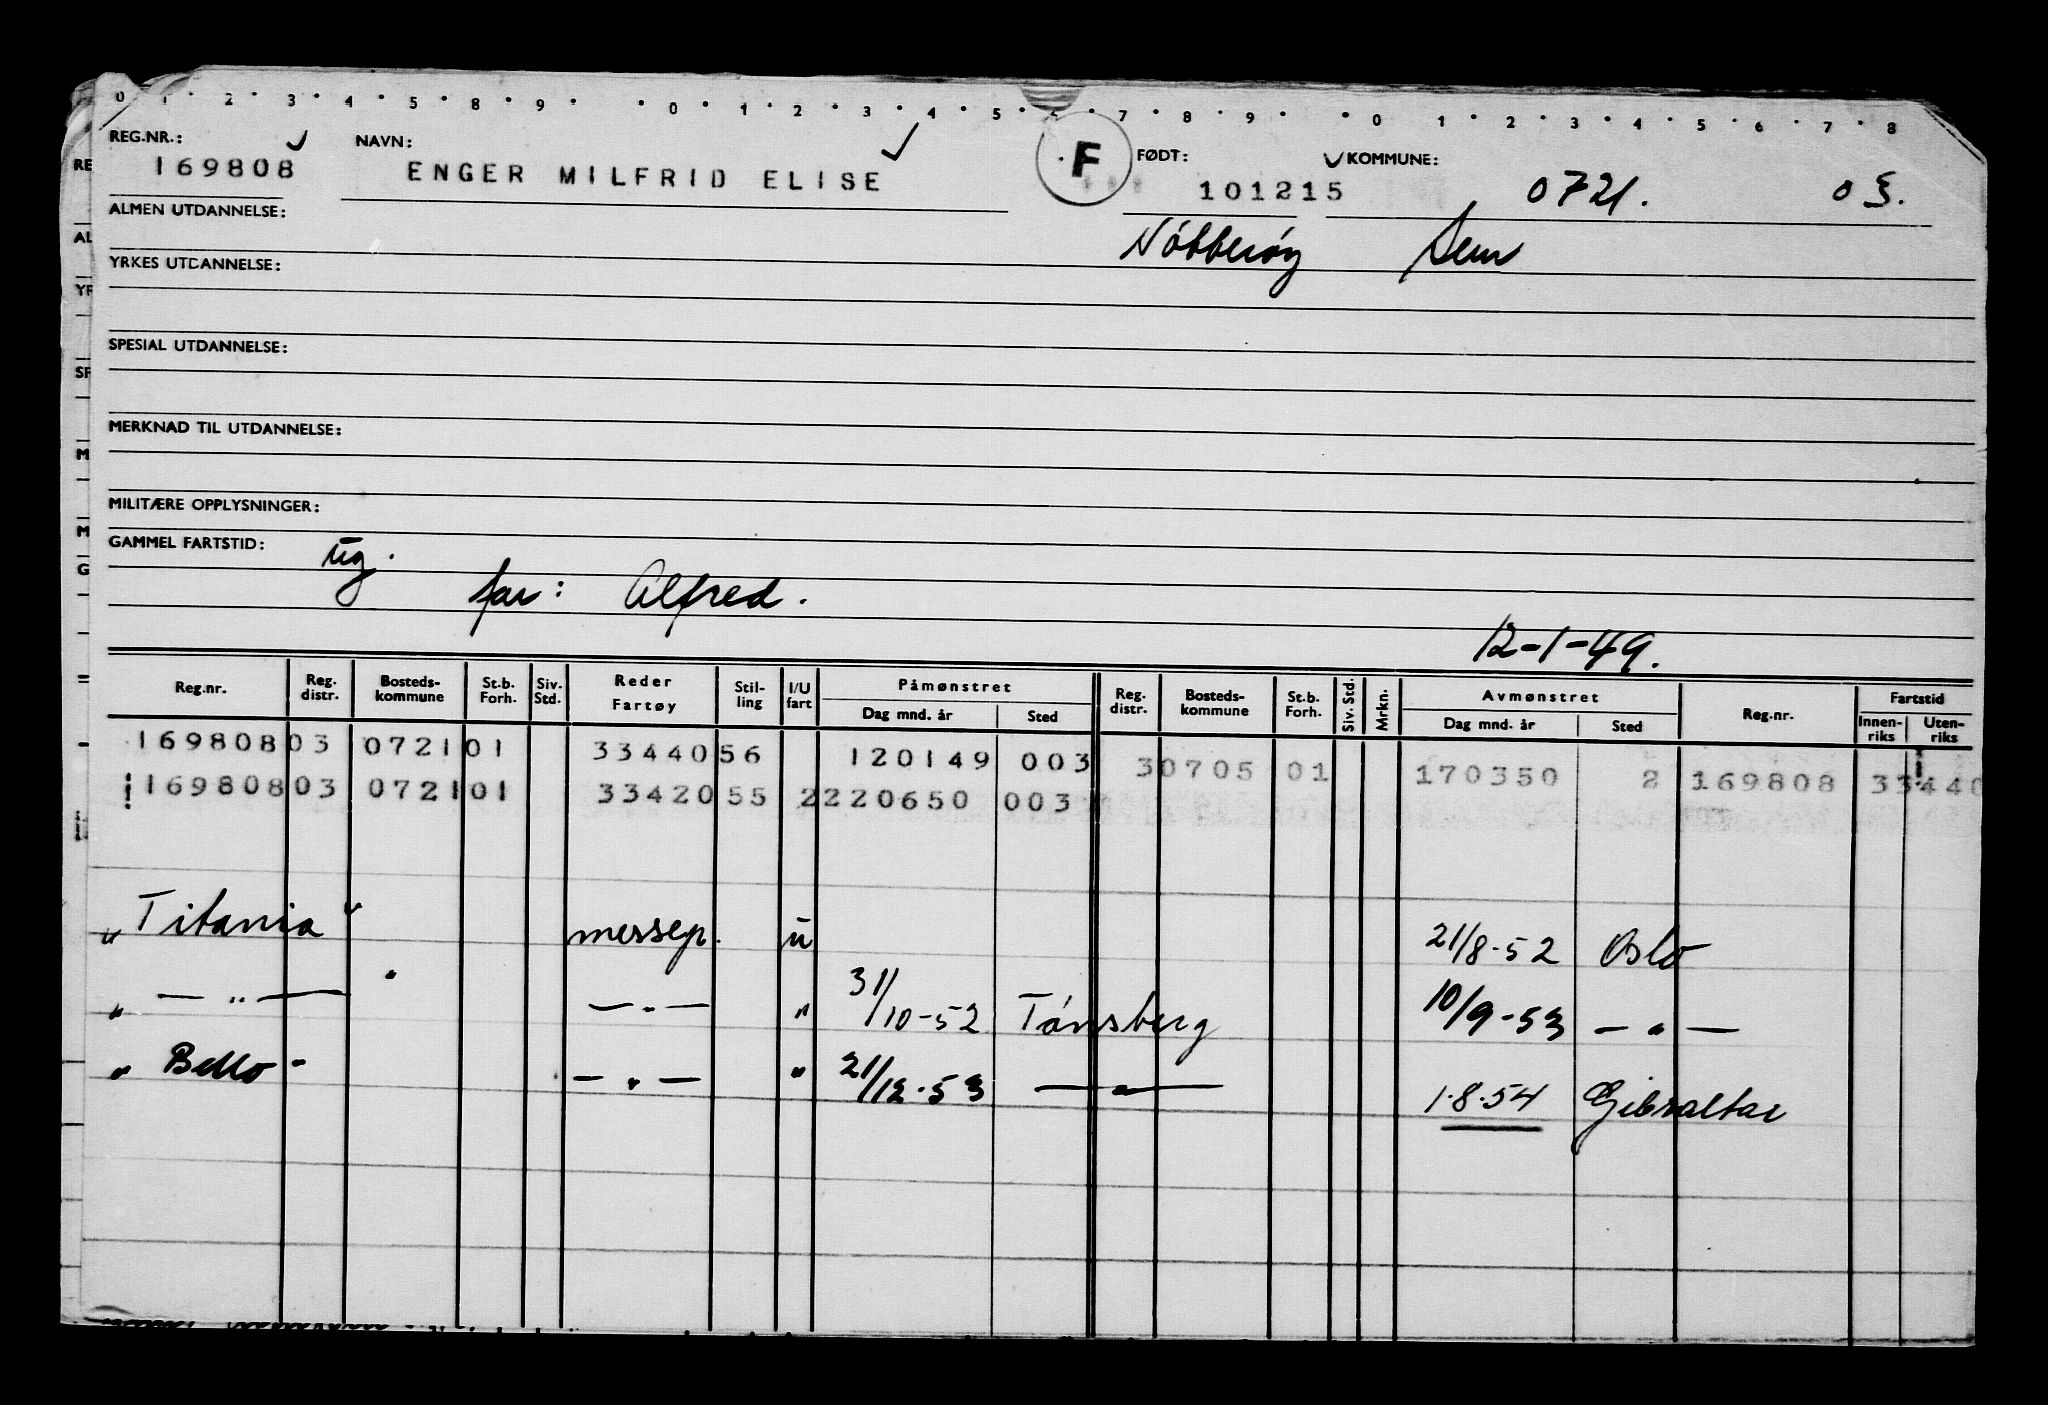 0 1 2 3 4 5 8 9 0 1 2 3 4 5 6 7 8 9 0 1 2 3 4 5 6 7 8
REG.NR.: NAVN: F FØDT: KOMMUNE:
169808 ENGER MILFRID ELISE 101215 0721. 03.
ALMEN UTDANNELSE: Nötterøy Sem
YRKES UTDANNELSE:
SPESIAL UTDANNELSE:
MERKNAD TIL UTDANNELSE:
MILITÆRE OPPLYSNINGER:
GAMMEL FARTSTID: ug.
far: Alfred.
12-1-49.
Reg.nr. Reg. distr. Bosteds-kommune St.b. Forh. Siv. Std. Reder Fartøy Stil-ling I/U fart Påmønstret Dag mnd. år Sted Reg. distr. Bosteds-kommune St.b. Forh. Siv. Std. Mrkn. Avmønstret Dag mnd. år Sted Reg.nr. Fartstid Innen-riks Uten-riks
169808 03 0721 01 33440 56 120149 003 3 0705 01 170350 2 169808 33440
169808 03 0721 01 33420 55 2 220650 003
"Titania" messep. u 21/8-52 Oslo
" — " — — " — " 31/10-52 Tönsberg 10/9-53 — " —
" Bello " — " — " 21/12-53 — " — 1.8.54 Gibraltar